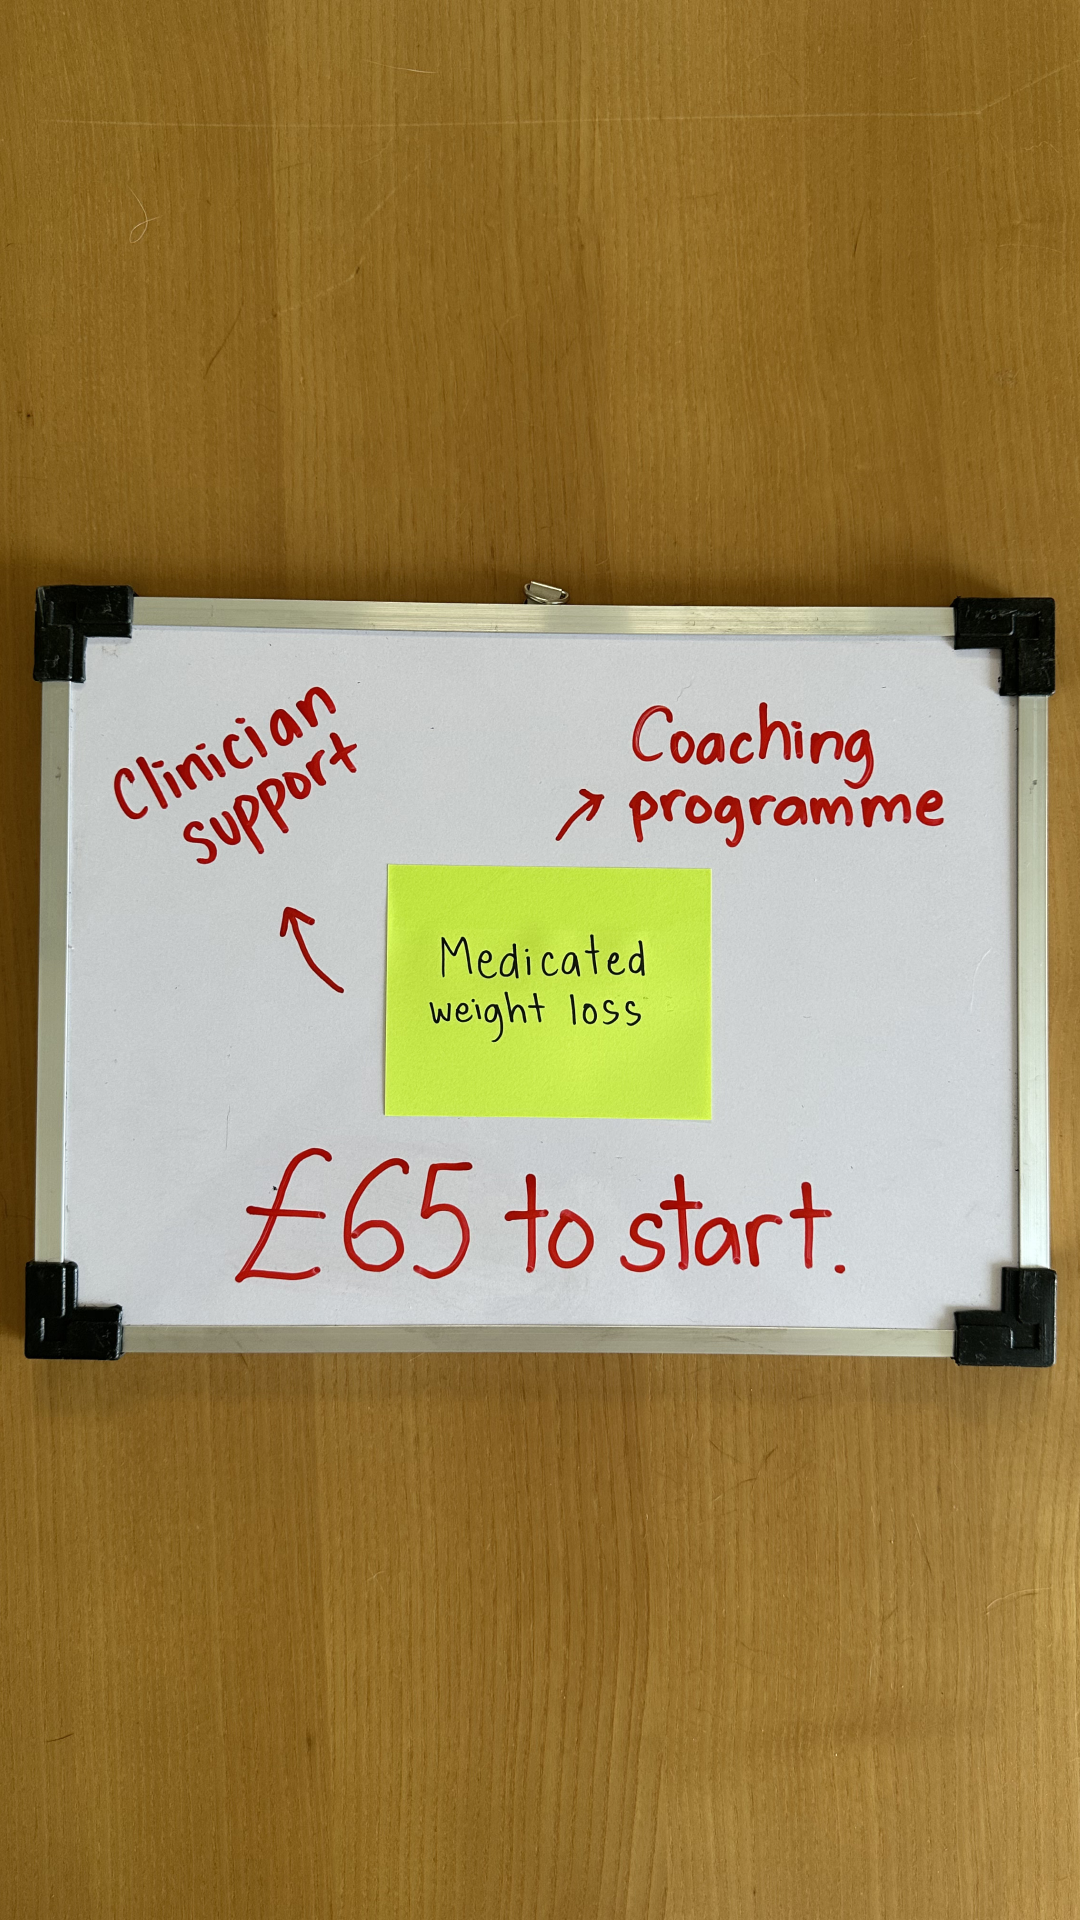 Clinician
support
Coaching
programme
Medicated
weight loss
£65 to start.